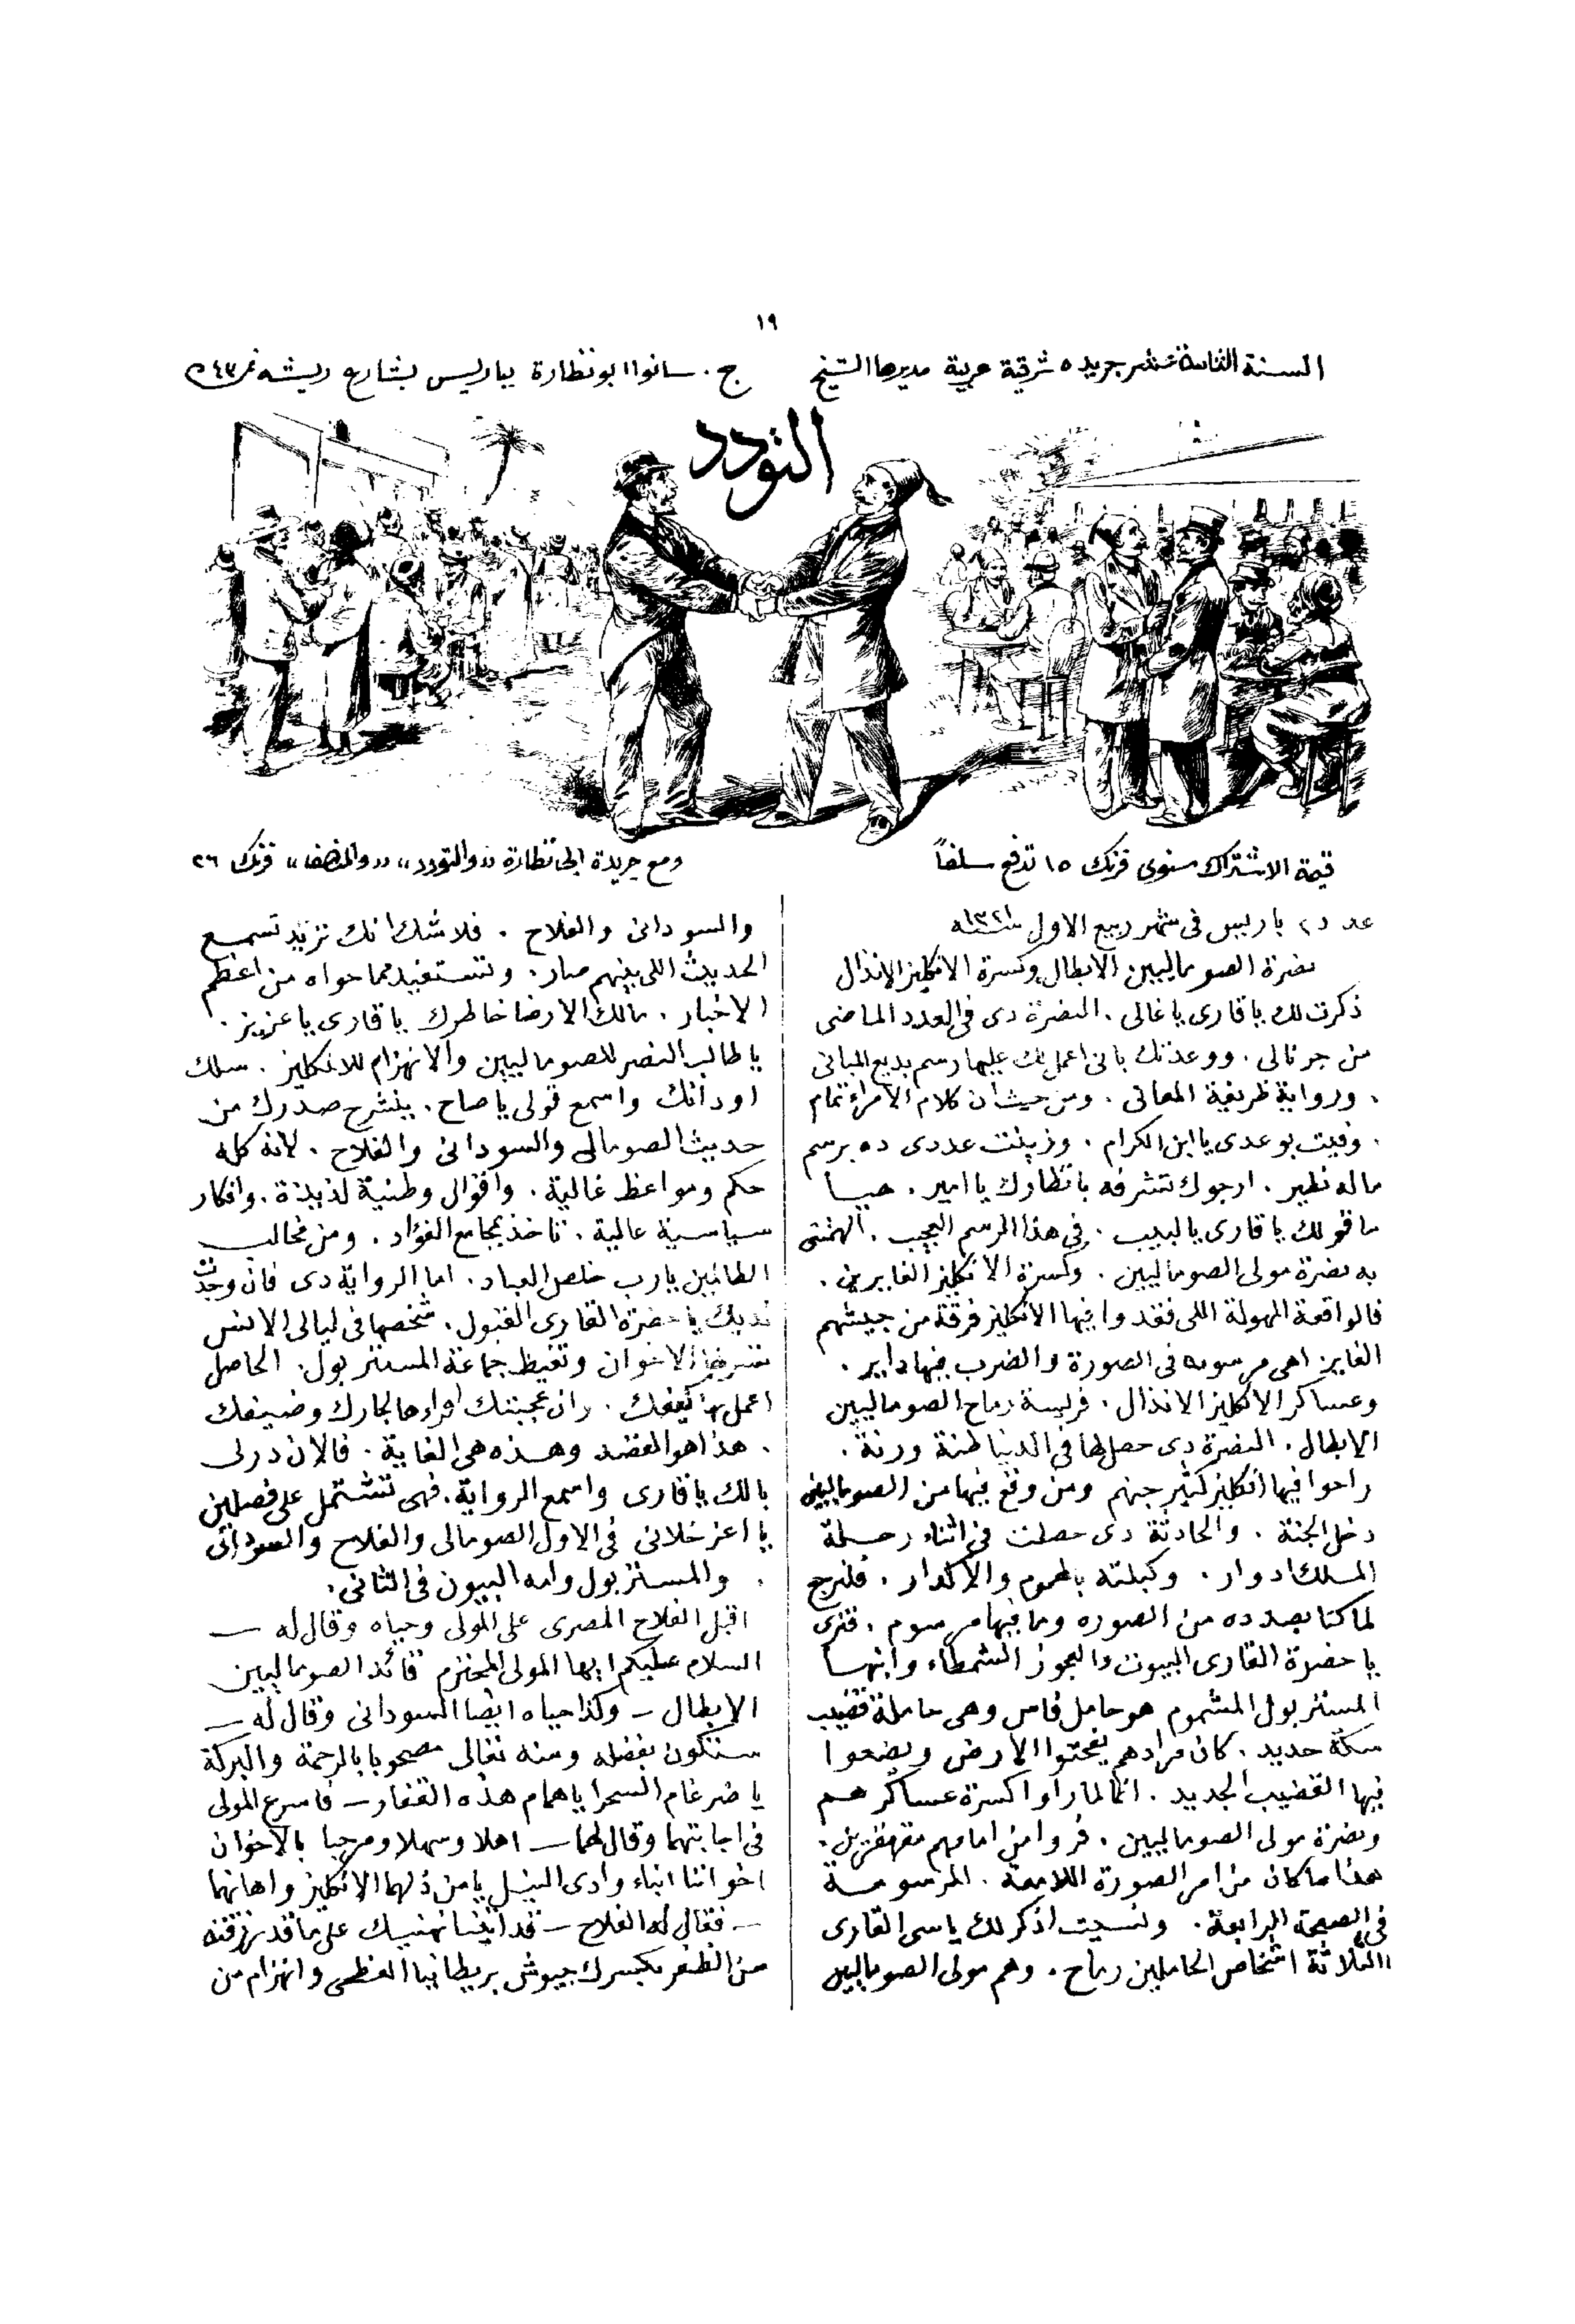 ١٩
السنة الثامنة عشر جريدة شرقية عربية مديرها الشيخ ج. سانوا ابو نظارة بباريس بشارع ريشه نمر ٤٣
التودد
قيمة الاشتراك سنوى فرنك ١٥ تدفع سلفاً
ومع جريدة ابى نظارة «والتودد» «والمنصف» فرنك ٢٦
عدد ٥ باريس فى شهر ربيع الاول سنة ١٣٢١
نصرة الصوماليين الابطال وكسرة الانكليز الانذال
ذكرت لك يا قارى يا غالى . النصرة دى فى العدد الماضى
من جرنالى . ووعدتك بانى اعمل لك عليها رسم بديع المبانى
. ورواية ظريفة المعانى . ومن حيث ان كلام الامراء تمام
. وفيت بوعدى يا ابن الكرام . وزينت عددى ده برسم
ماله نظير . ارجوك تشرفه بانظارك يا امير . هيا
ما قولك يا قارى يا لبيب . فى هذا الرسم العجيب . الهمتنى
به نصرة مولى الصوماليين . وكسرة الانكليز الغايرين .
فالواقعة المهولة اللى فقدوا فيها الانكليز فرقة من جيشهم
الغاير اهى مرسومه فى الصورة والضرب فيها داير .
وعساكر الانكليز الانذال . فريسة رماح الصوماليين
الابطال . النصرة دى حصل لها فى الدنيا طنة ورنة .
راحوا فيها انكليز كثير جهنم ومن وقع فيها من الصوماليين
دخل الجنة . والحادثة دى حصلت فى اثناء رحلة
الملك ادوار . وكبلته بالهموم والاكدار . فلنرجع
لما كنا بصدده من الصوره وما فيها مرسوم . فترى
يا حضرة القارى البيوت والعجوز الشمطاء وابنها
المستر بول المشموم هو حامل فاس وهى حاملة قضيب
سكة حديد . كان مرادهم يفحتوا الارض ويضعوا
فيها القضيب الجديد . انما لما راوا كسرة عساكر هم
ونصرة مولى الصوماليين . فروا من امامهم مقهقرين .
هذا ما كان من امر الصورة اللامعة . المرسومة
فى الصحيفة الرابعة . ونسيت اذكر لك ياسى القارى
الثلاثة اشخاص الحاملين رماح . وهم مولى الصوماليين
والسودانى والفلاح . فلا شك انك تريد تسمع
الحديث اللى بينهم صار . وتستفيد مما حواه من اعظم
الاخبار . مالك الا رضا خاطرك يا قارى يا عزيز .
يا طالب النصر للصوماليين والانهزام للانكليز . سلك
اودانك واسمع قولى يا صاح . ينشرح صدرك من
حديث الصومالى والسودانى والفلاح . لانه كله
حكم ومواعظ غالية . واقوال وطنية لذيذة . وافكار
سياسية عالية . تاخذ بمجامع الفؤاد . ومن مخالب
الظالمين يارب خلص العباد . اما الرواية دى فان وجدت
لديك يا حضرة القارى القبول . شخصها فى ليالى الانس
الاخوان وتغيظ جماعة المستر بول . الحاصل
اعمل بها كيفك . وان عجبتك اقراءها لجارك وضيفك
. هذا هو القصد وهذه هى الغاية . فالان درلى
بالك يا قارى واسمع الرواية . فهى تشتمل على فصلين
يا اعز خلانى فى الاول الصومالى والفلاح والسودانى
. والمستر بول وامه البيون فى الثانى .
اقبل الفلاح المصرى على المولى وحياه وقال له —
السلام عليكم ايها المولى المحترم قائد الصوماليين
الابطال — وكذا حياه ايضا السودانى وقال له —
ستكون بفضله ومنه تعالى مصحوبا بالرحمة والبركة
يا ضرغام السحرا يا همام هذه القفار — فاسرع المولى
فى اجابتهما وقال لهما — اهلا وسهلا ومرحبا بالاخوان
اخواننا ابناء وادى النيل يا من ذلهما الانكليز واهانهما
— فقال له الفلاح — قد اتينا نهنيك على ما قد رزقته
من الظفر بكسرك جيوش بريطانيا العظمى وانهزام من